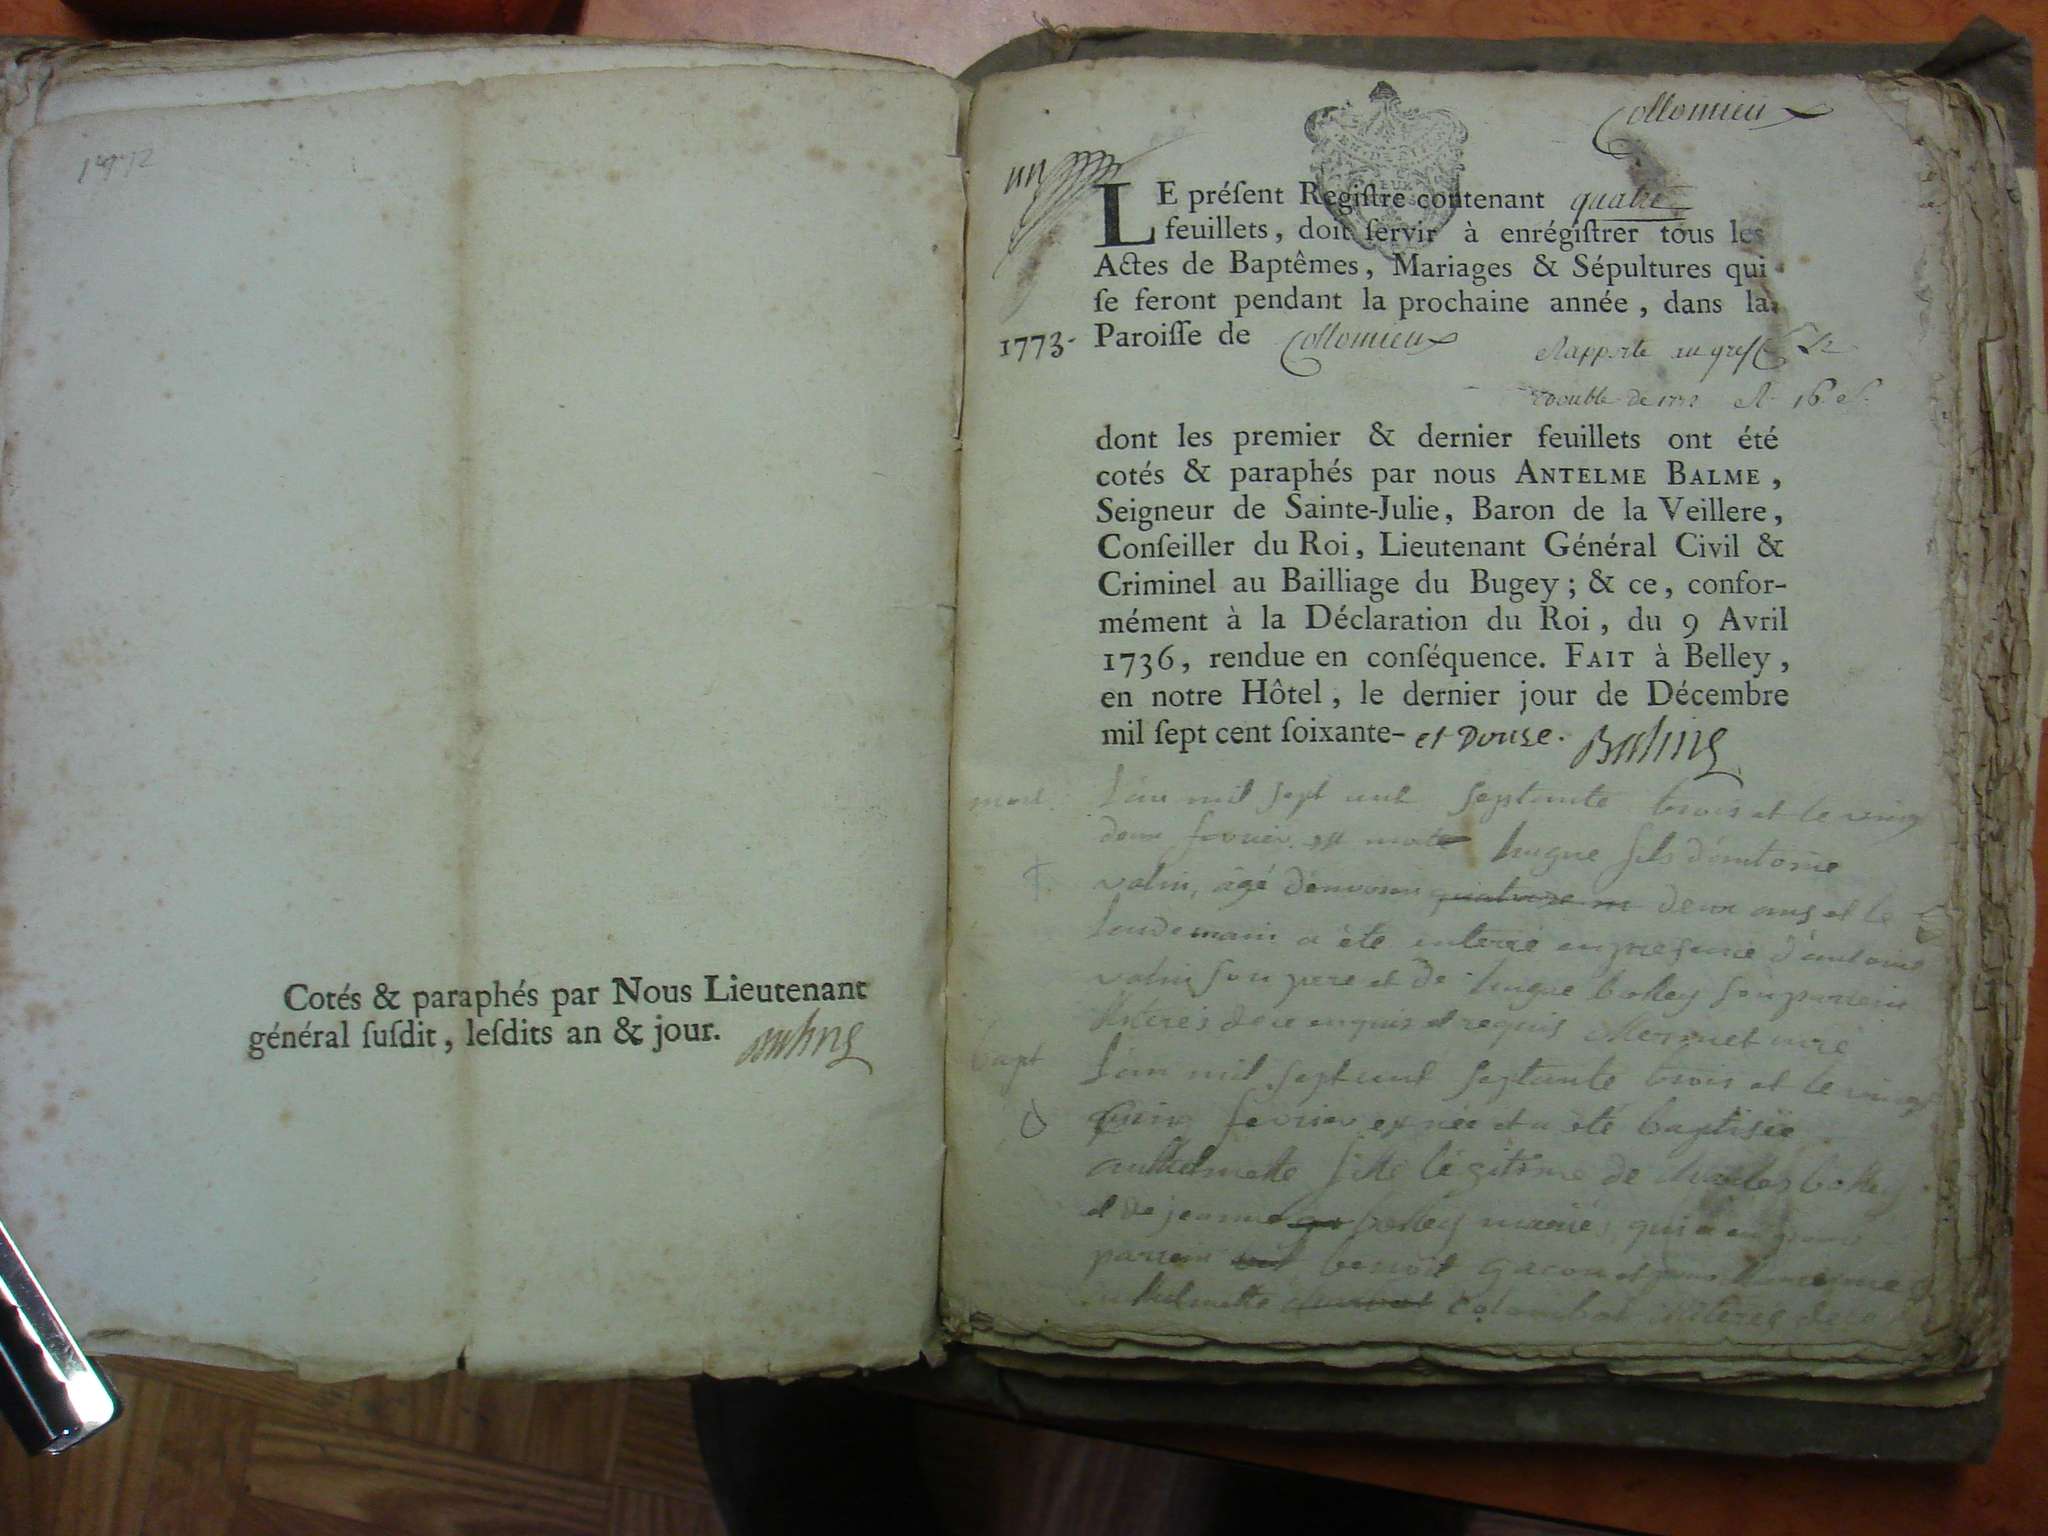 1772
Cotés & paraphés par Nous Lieutenant
général ſuſdit, leſdits an & jour. Balme
Collomieux
un
LE préſent Regiſtre contenant quatre
feuillets, doit ſervir à enrégiſtrer tous les
Actes de Baptêmes, Mariages & Sépultures qui
ſe feront pendant la prochaine année, dans la
1773. Paroiſſe de Collomieux
Rapporte au greffe le
double de 1772
dont les premier & dernier feuillets ont été
cotés & paraphés par nous ANTELME BALME,
Seigneur de Sainte-Julie, Baron de la Veillere,
Conſeiller du Roi, Lieutenant Général Civil &
Criminel au Bailliage du Bugey; & ce, confor-
mément à la Déclaration du Roi, du 9 Avril
1736, rendue en conſéquence. FAIT à Belley,
en notre Hôtel, le dernier jour de Décembre
mil ſept cent ſoixante- et Douse. Balme
mort. L'an mil sept cent septante trois et le vingt
deux fevrier est mort hugue fils d'antoine
volin, agé d'environ deux ans et le
lendemain a été enterré en presence d'antoine
volin son pere et de hugue bolley son parrein
illiterés de ce enquis et requis curé
bapt L'an mil sept cent septante trois et le vingt
cinq fevrier est née et a été baptisée
anthelmette fille légitime de charles bolley
et de jeanne bolley mariés, qui a eu pour
parrein benoit gacon et pour marreine
anthelmette colombat illiterés de ce